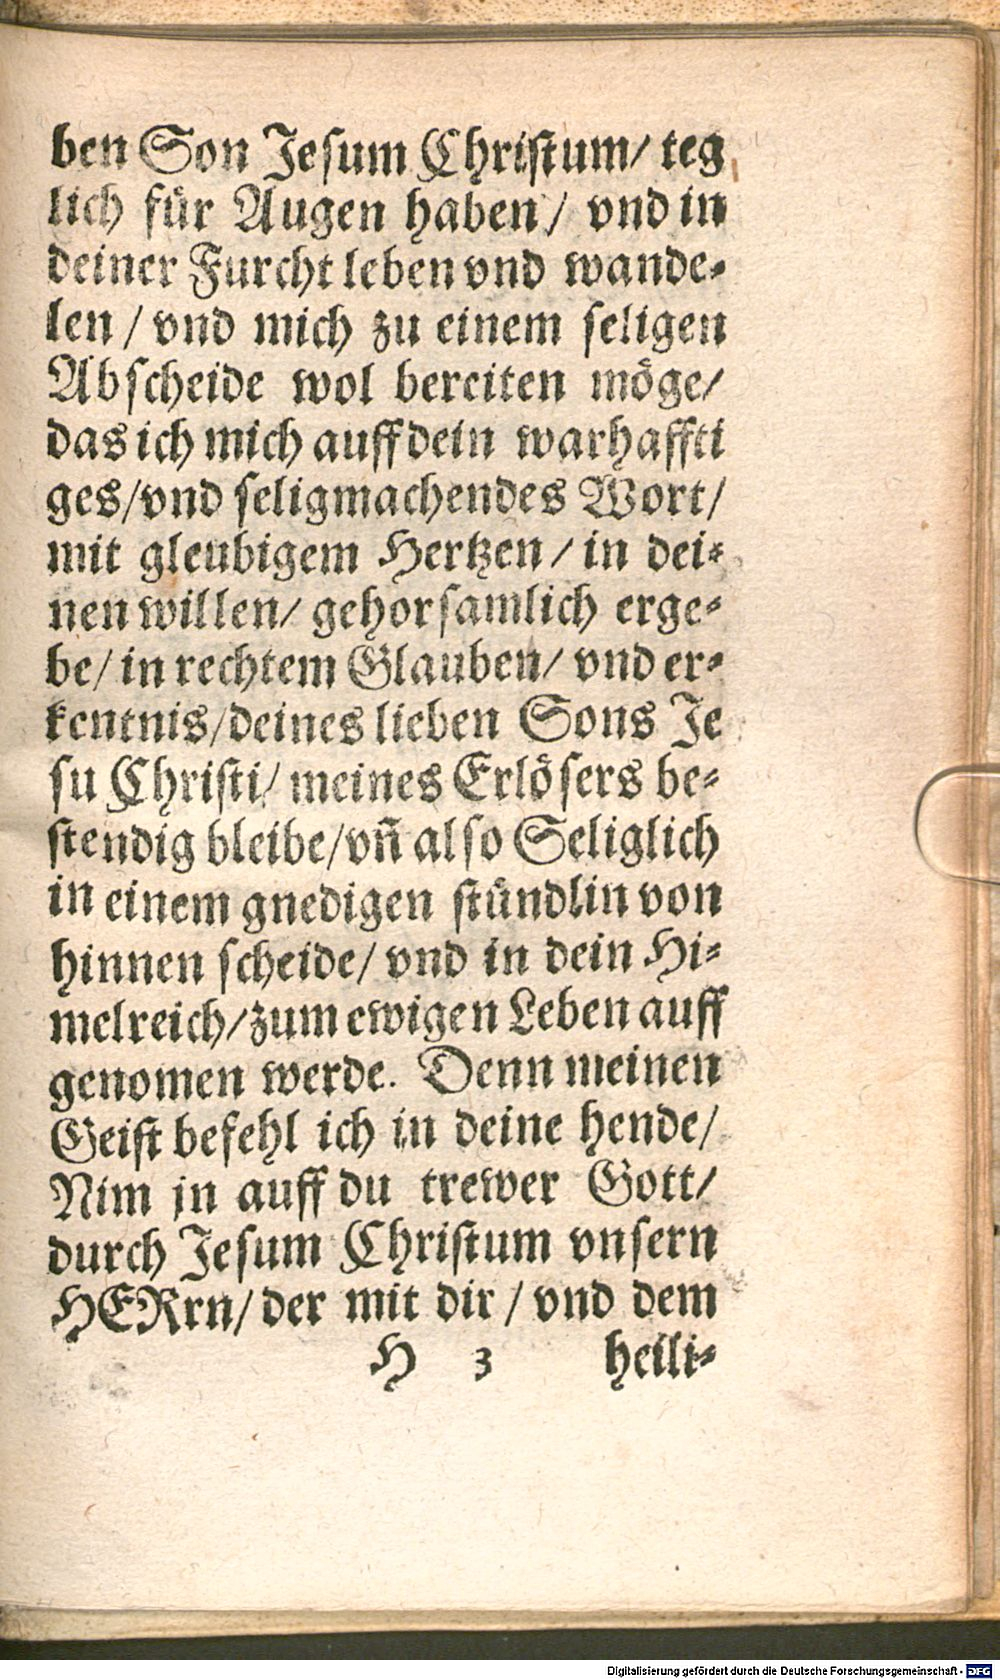 ben Son Jesum Christum/ teg
lich für Augen haben/ vnd in
deiner Furcht leben vnd wande⸗
len / vnd mich zu einem seligen
Abscheide wol bereiten möge/
das ich mich auff dein warhaffti
ges/vnd seligmachendes Wort/
mit gleubigem Hertzen/ in dei⸗
nen willen/ gehorsamlich erge⸗
be/ in rechtem Glauben/ vnd er⸗
kentnis/deines lieben Sons Je
su Christi/ meines Erlösers be⸗
stendig bleibe/vñ also Seliglich
in einem gnedigen stündlin von
hinnen scheide/ vnd in dein Hi⸗
melreich/zum ewigen Leben auff
genomen werde. Denn meinen
Geist befehl ich in deine hende/
Nim jn auff du trewer Gott/
durch Jesum Christum vnsern
HERrn/ der mit dir / vnd dem
H 3 heili⸗
Digitalisierung gefördert durch die Deutsche Forschungsgemeinschaft - DFG